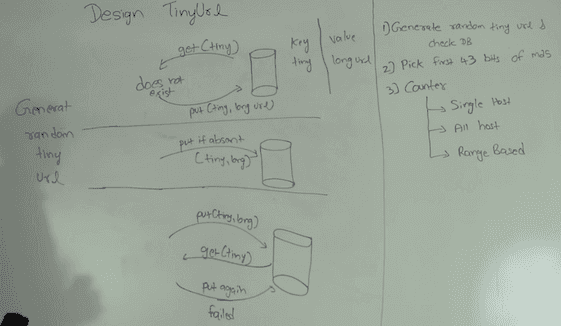 Design TinyUrl
get(tiny)
does not
exist
put(tiny, long url)
Key
tiny
value
long url
Generat
random
tiny
url
put if absant
(tiny, long)
put(tiny, long)
get(tiny)
put again
failed
1) Generate random tiny url &
check DB
2) Pick first 43 bits of md5
3) Counter
→ Single Host
→ All host
→ Range Based